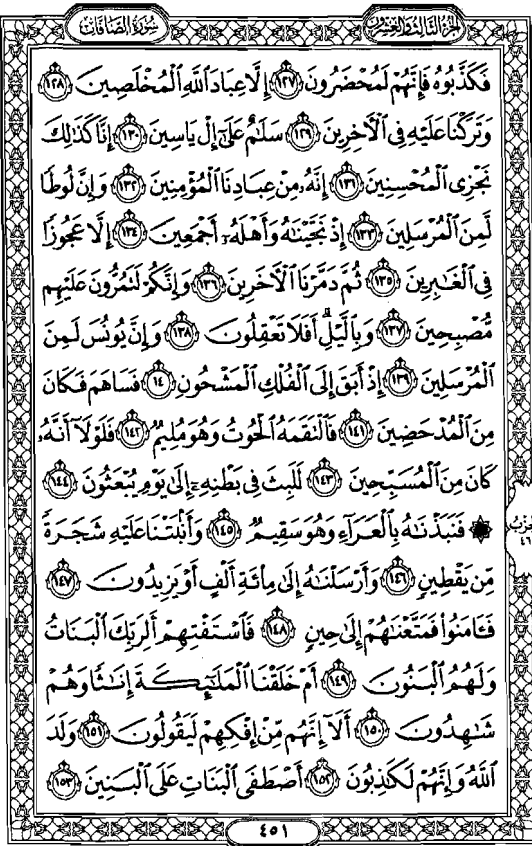 الجزء الثالث والعشرون
سورة الصافات
فَكَذَّبُوهُ فَإِنَّهُمْ لَمُحْضَرُونَ ١٢٧ إِلَّا عِبَادَ ٱللَّهِ ٱلْمُخْلَصِينَ ١٢٨
وَتَرَكْنَا عَلَيْهِ فِى ٱلْأَخِرِينَ ١٢٩ سَلَٰمٌ عَلَىٰٓ إِلْ يَاسِينَ ١٣٠ إِنَّا كَذَٰلِكَ
نَجْزِى ٱلْمُحْسِنِينَ ١٣١ إِنَّهُۥ مِنْ عِبَادِنَا ٱلْمُؤْمِنِينَ ١٣٢ وَإِنَّ لُوطًا
لَّمِنَ ٱلْمُرْسَلِينَ ١٣٣ إِذْ نَجَّيْنَٰهُ وَأَهْلَهُۥٓ أَجْمَعِينَ ١٣٤ إِلَّا عَجُوزًا
فِى ٱلْغَٰبِرِينَ ١٣٥ ثُمَّ دَمَّرْنَا ٱلْأَخَرِينَ ١٣٦ وَإِنَّكُمْ لَتَمُرُّونَ عَلَيْهِم
مُّصْبِحِينَ ١٣٧ وَبِٱلَّيْلِۗ أَفَلَا تَعْقِلُونَ ١٣٨ وَإِنَّ يُونُسَ لَمِنَ
ٱلْمُرْسَلِينَ ١٣٩ إِذْ أَبَقَ إِلَى ٱلْفُلْكِ ٱلْمَشْحُونِ ١٤٠ فَسَاهَمَ فَكَانَ
مِنَ ٱلْمُدْحَضِينَ ١٤١ فَٱلْتَقَمَهُ ٱلْحُوتُ وَهُوَ مُلِيمٌ ١٤٢ فَلَوْلَآ أَنَّهُۥ
كَانَ مِنَ ٱلْمُسَبِّحِينَ ١٤٣ لَلَبِثَ فِى بَطْنِهِۦٓ إِلَىٰ يَوْمِ يُبْعَثُونَ ١٤٤
۞ فَنَبَذْنَٰهُ بِٱلْعَرَآءِ وَهُوَ سَقِيمٌ ١٤٥ وَأَنۢبَتْنَا عَلَيْهِ شَجَرَةً
مِّن يَقْطِينٍ ١٤٦ وَأَرْسَلْنَٰهُ إِلَىٰ مِا۟ئَةِ أَلْفٍ أَوْ يَزِيدُونَ ١٤٧
فَـَٔامَنُوا۟ فَمَتَّعْنَٰهُمْ إِلَىٰ حِينٍ ١٤٨ فَٱسْتَفْتِهِمْ أَلِرَبِّكَ ٱلْبَنَاتُ
وَلَهُمُ ٱلْبَنُونَ ١٤٩ أَمْ خَلَقْنَا ٱلْمَلَٰٓئِكَةَ إِنَٰثًا وَهُمْ
شَٰهِدُونَ ١٥٠ أَلَآ إِنَّهُم مِّنْ إِفْكِهِمْ لَيَقُولُونَ ١٥١ وَلَدَ
ٱللَّهُ وَإِنَّهُمْ لَكَٰذِبُونَ ١٥٢ أَصْطَفَى ٱلْبَنَاتِ عَلَى ٱلْبَنِينَ ١٥٣
٤٥١